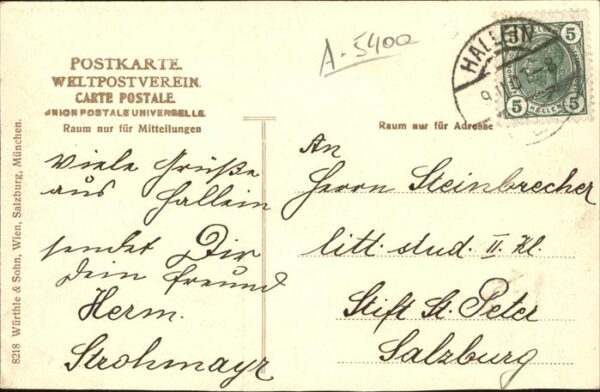 A-5400
POSTKARTE.
WELTPOSTVEREIN.
CARTE POSTALE.
UNION POSTALE UNIVERSELLE.
Raum nur für Mitteilungen
Viele Grüße
aus Hallein
sendet Dir
Dein Freund
Herm.
Strohmayr
8218 Würthle & Sohn, Wien, Salzburg, München.
HALLEIN
5 5
5 HELLER 5
Raum nur für Adresse
An
Herrn Steinbrecher
litt. stud. II. Kl
Stift St. Peter
Salzburg